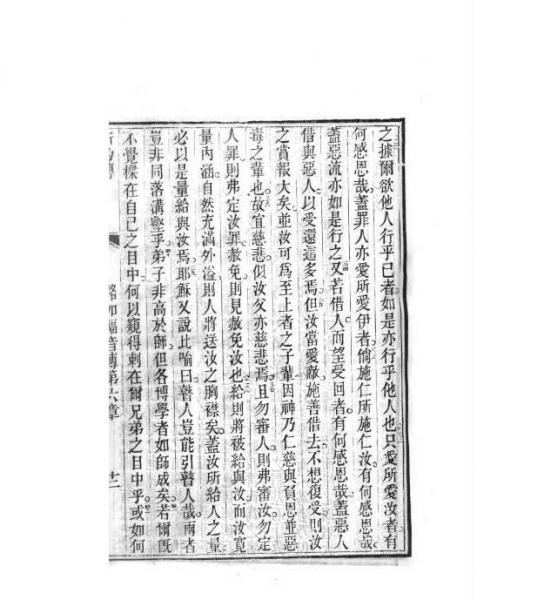 之據爾欲他人行乎己者如是亦行乎他人也只愛所愛汝者有
何感恩哉蓋罪人亦愛所愛伊者倘施仁所施仁汝有何感恩哉
蓋惡流亦如是行之又若借人而望受回者有何感恩哉蓋惡人
借與惡人以受還這多焉但汝當愛敵施善借去不想復受則汝
之賞報大矣並汝可為至上者之子輩因神乃仁慈與負恩並惡
毒之輩也故宜慈悲似汝父亦慈悲焉且勿審人則弗審汝勿定
人罪則弗定汝罪赦免則見赦免汝也給則將被給與汝而汝寬
量內涵自然充滿外溢則人將送汝之胸襟矣蓋汝所給人之量
必以是量給與汝焉耶穌又說此喻曰瞽人豈能引瞽人哉兩者
豈非同落溝壑乎弟子非高於師但各博學者如師成矣若爾既
不覺樑在自己之目中何以窺得刺在爾兄弟之目中乎或如何
路加福音傳第六章 十二